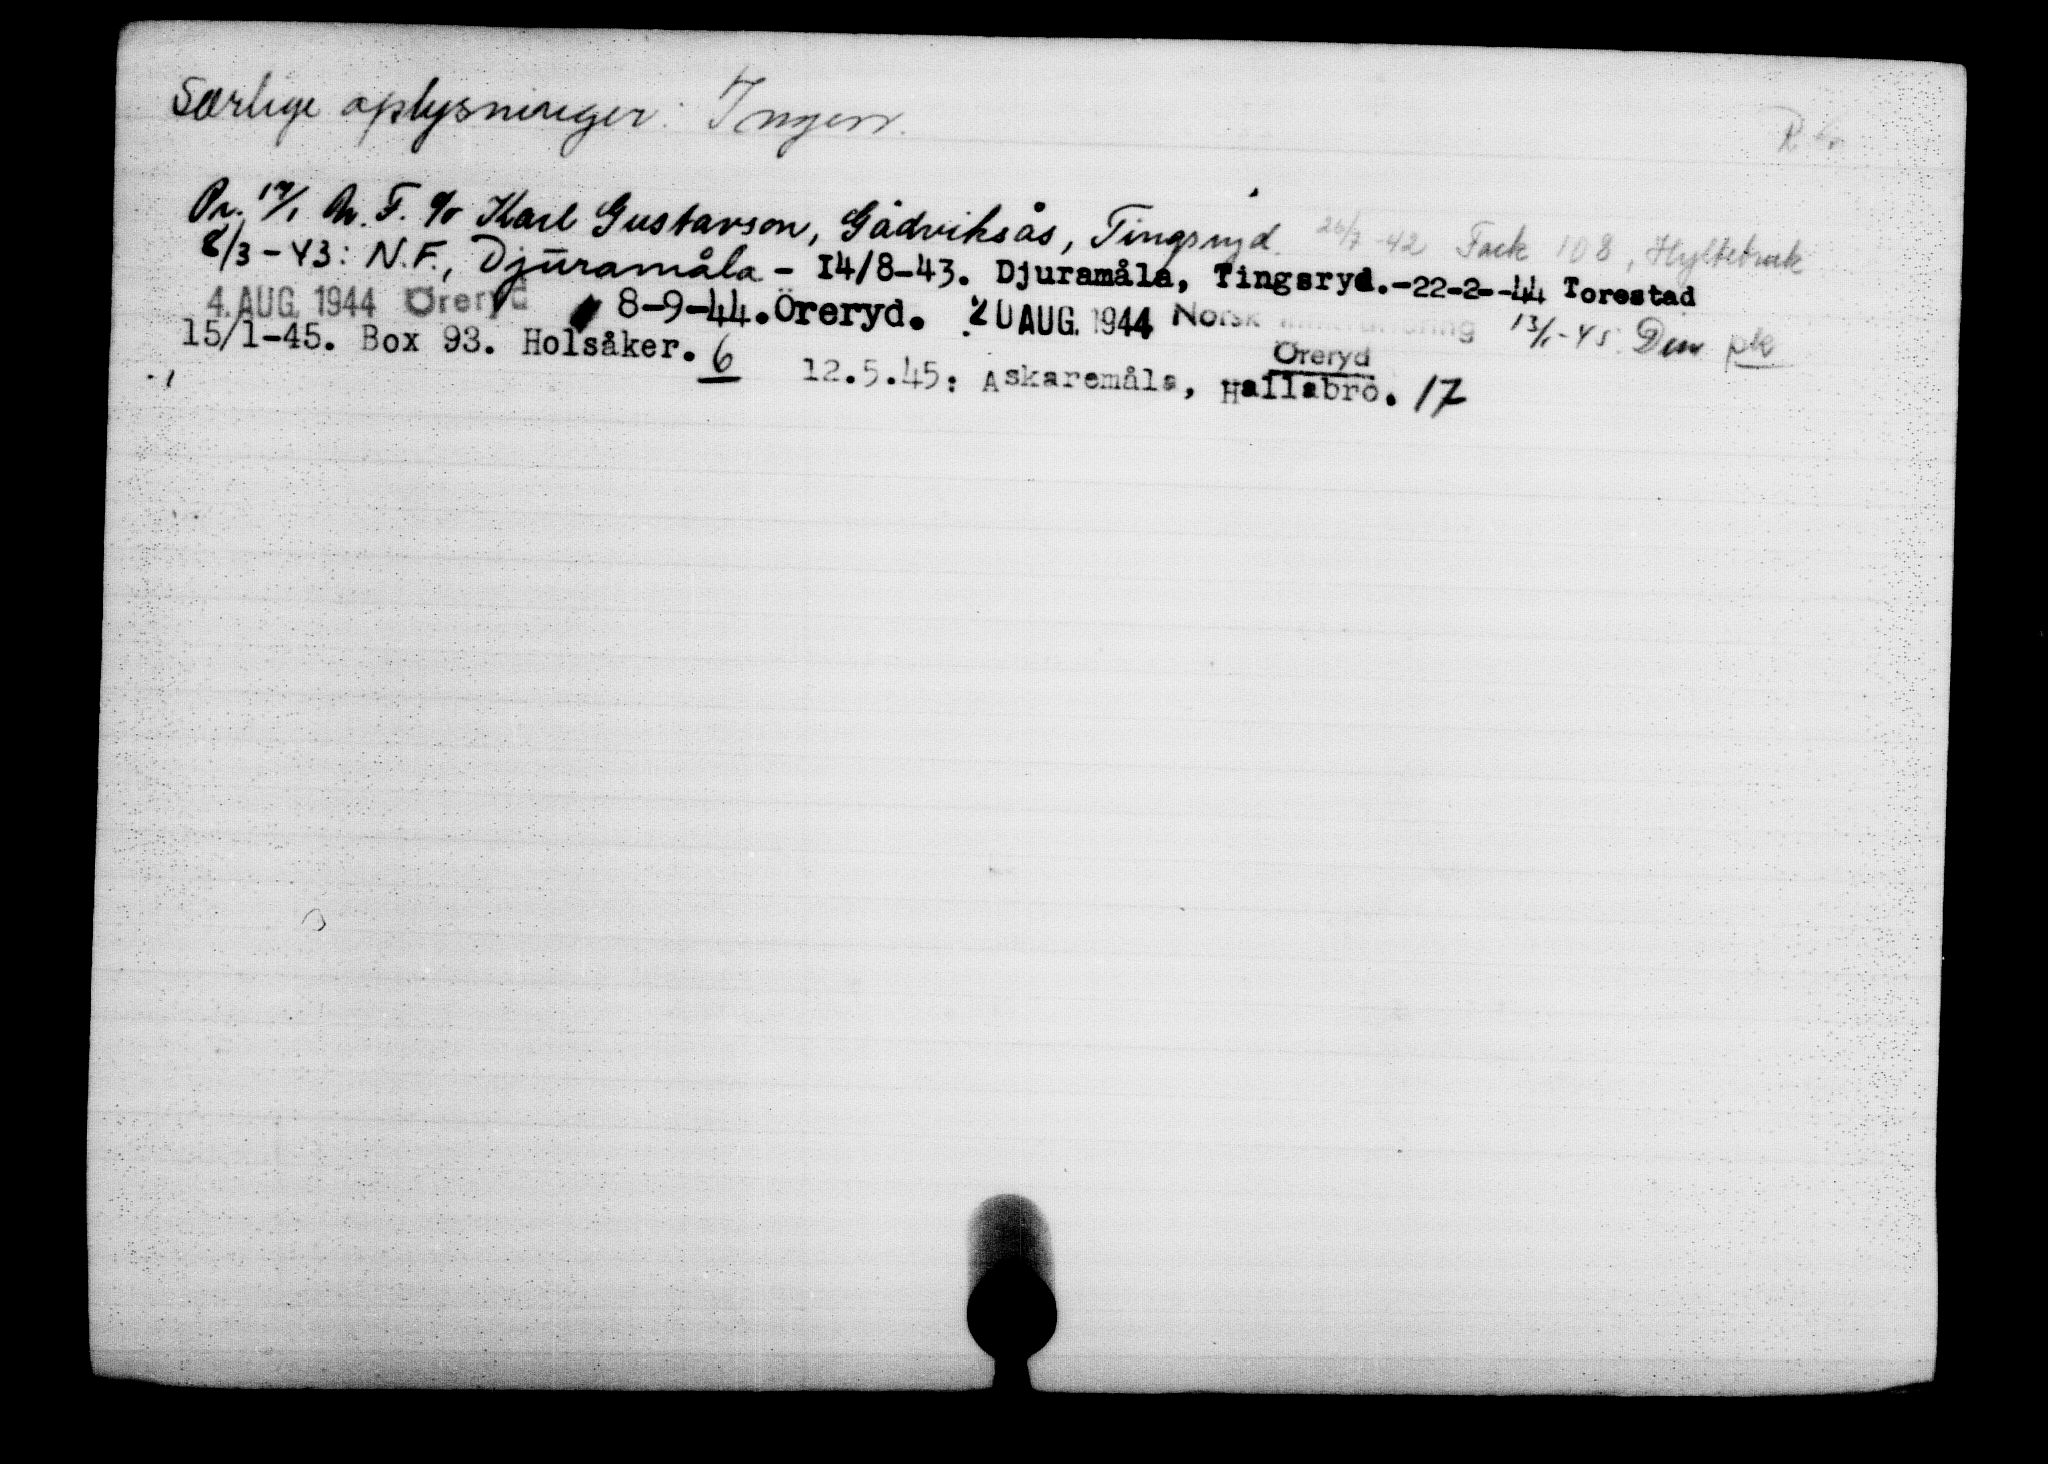 Særlige oplysninger: Ingen.
Pr. 17/1 N.F. c/o Karl Gustavson, Gådviksås, Tingsryd. 26/7-42 Fack 108, Hyltebruk
8/3-43: N.F., Djuramåla - 14/8-43. Djuramåla, Tingsryd.-22-2--44 Torestad
4. AUG. 1944 Öreryd 8-9-44. Öreryd. 20 AUG. 1944 Norsk 13/1-45:
Öreryd
15/1-45. Box 93. Holsåker. 6 12.5.45: Askaremåla, Hallabro. 17